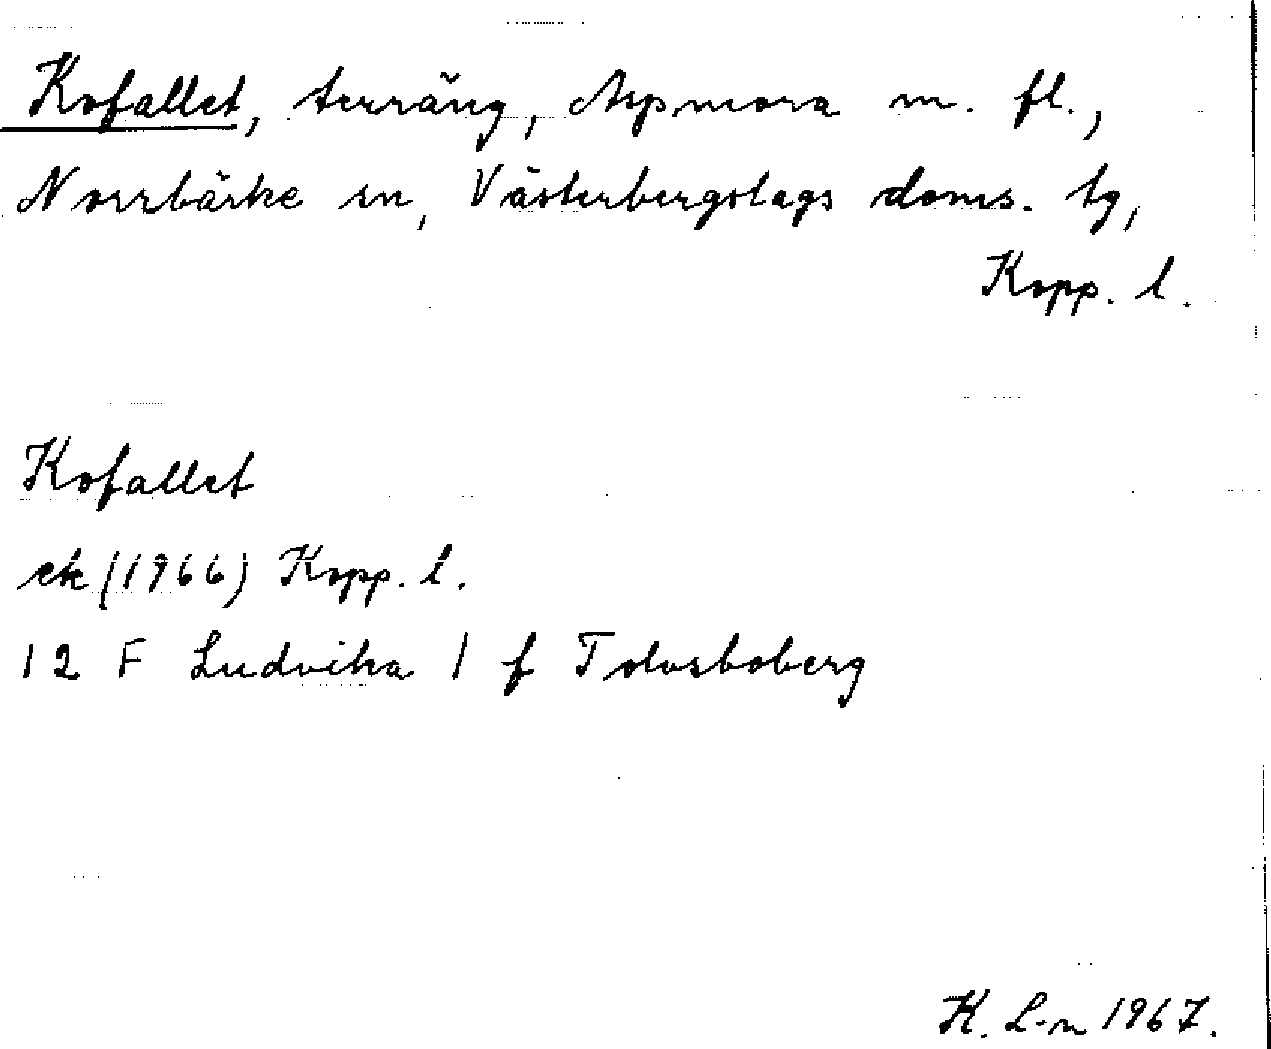 Kofallet, terräng, Aspmora m. fl.,
Norrbärke sn, Västerbergslags doms. tg,
Kopp. l.
Kofallet
ek (1966) Kopp. l.
12 F Ludvika 1 f Tolvsboberg
K. L-n 1967.